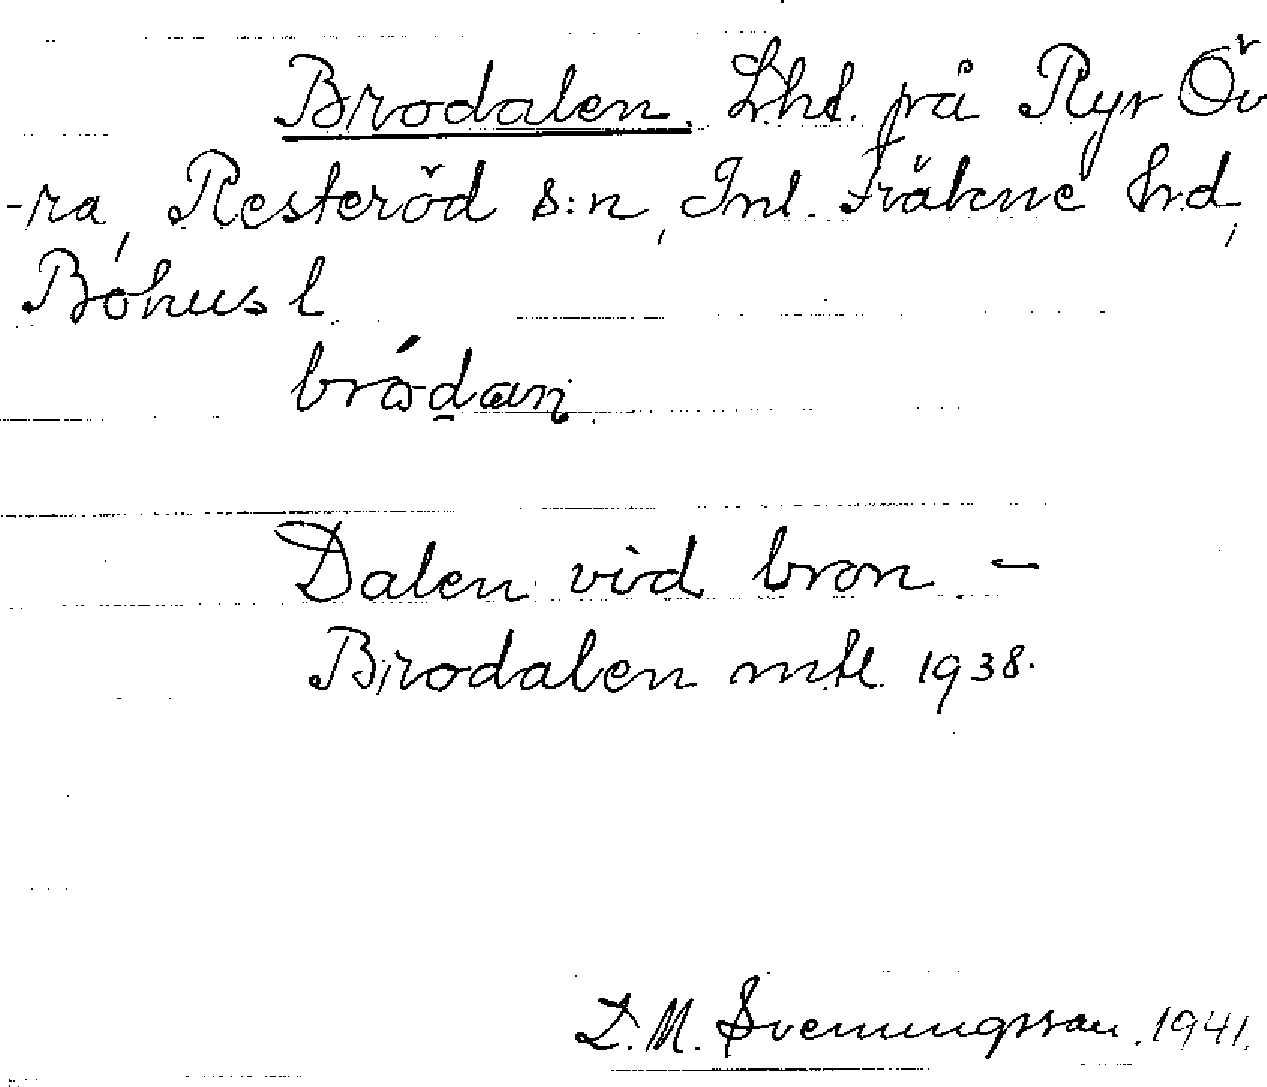 Brodalen. Lht. på Ryr Öv
-ra, Resteröd s:n, Inl. Fräkne hrd,
Bohus l.
Dalen vid bron. –
Brodalen mtl. 1938.
D. M. Svenningsson. 1941.